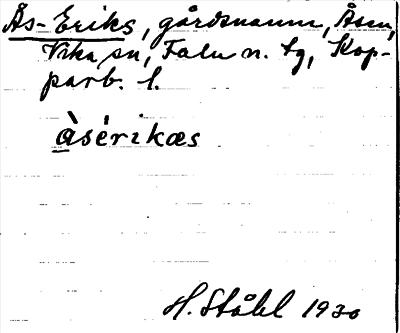 Ås-Eriks, gårdsnamn, Åsen,
Vika sn, Falu n. tg, Kop-
parb. l.
å̀sérikæs
H. Ståhl 1930